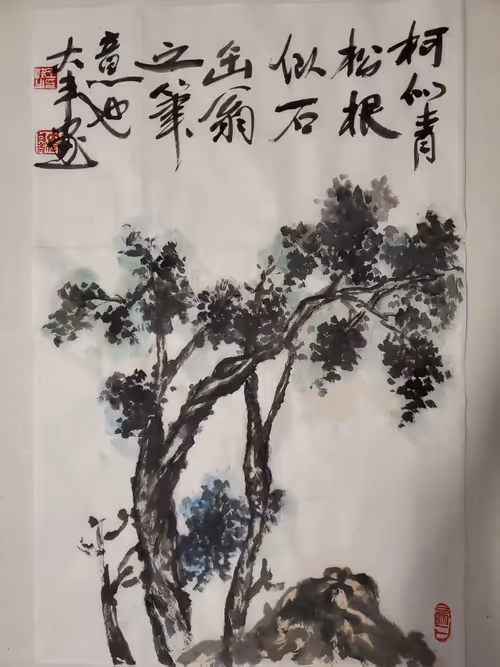 柯似青
松根
似石
缶翁
之筆
意也
大丰